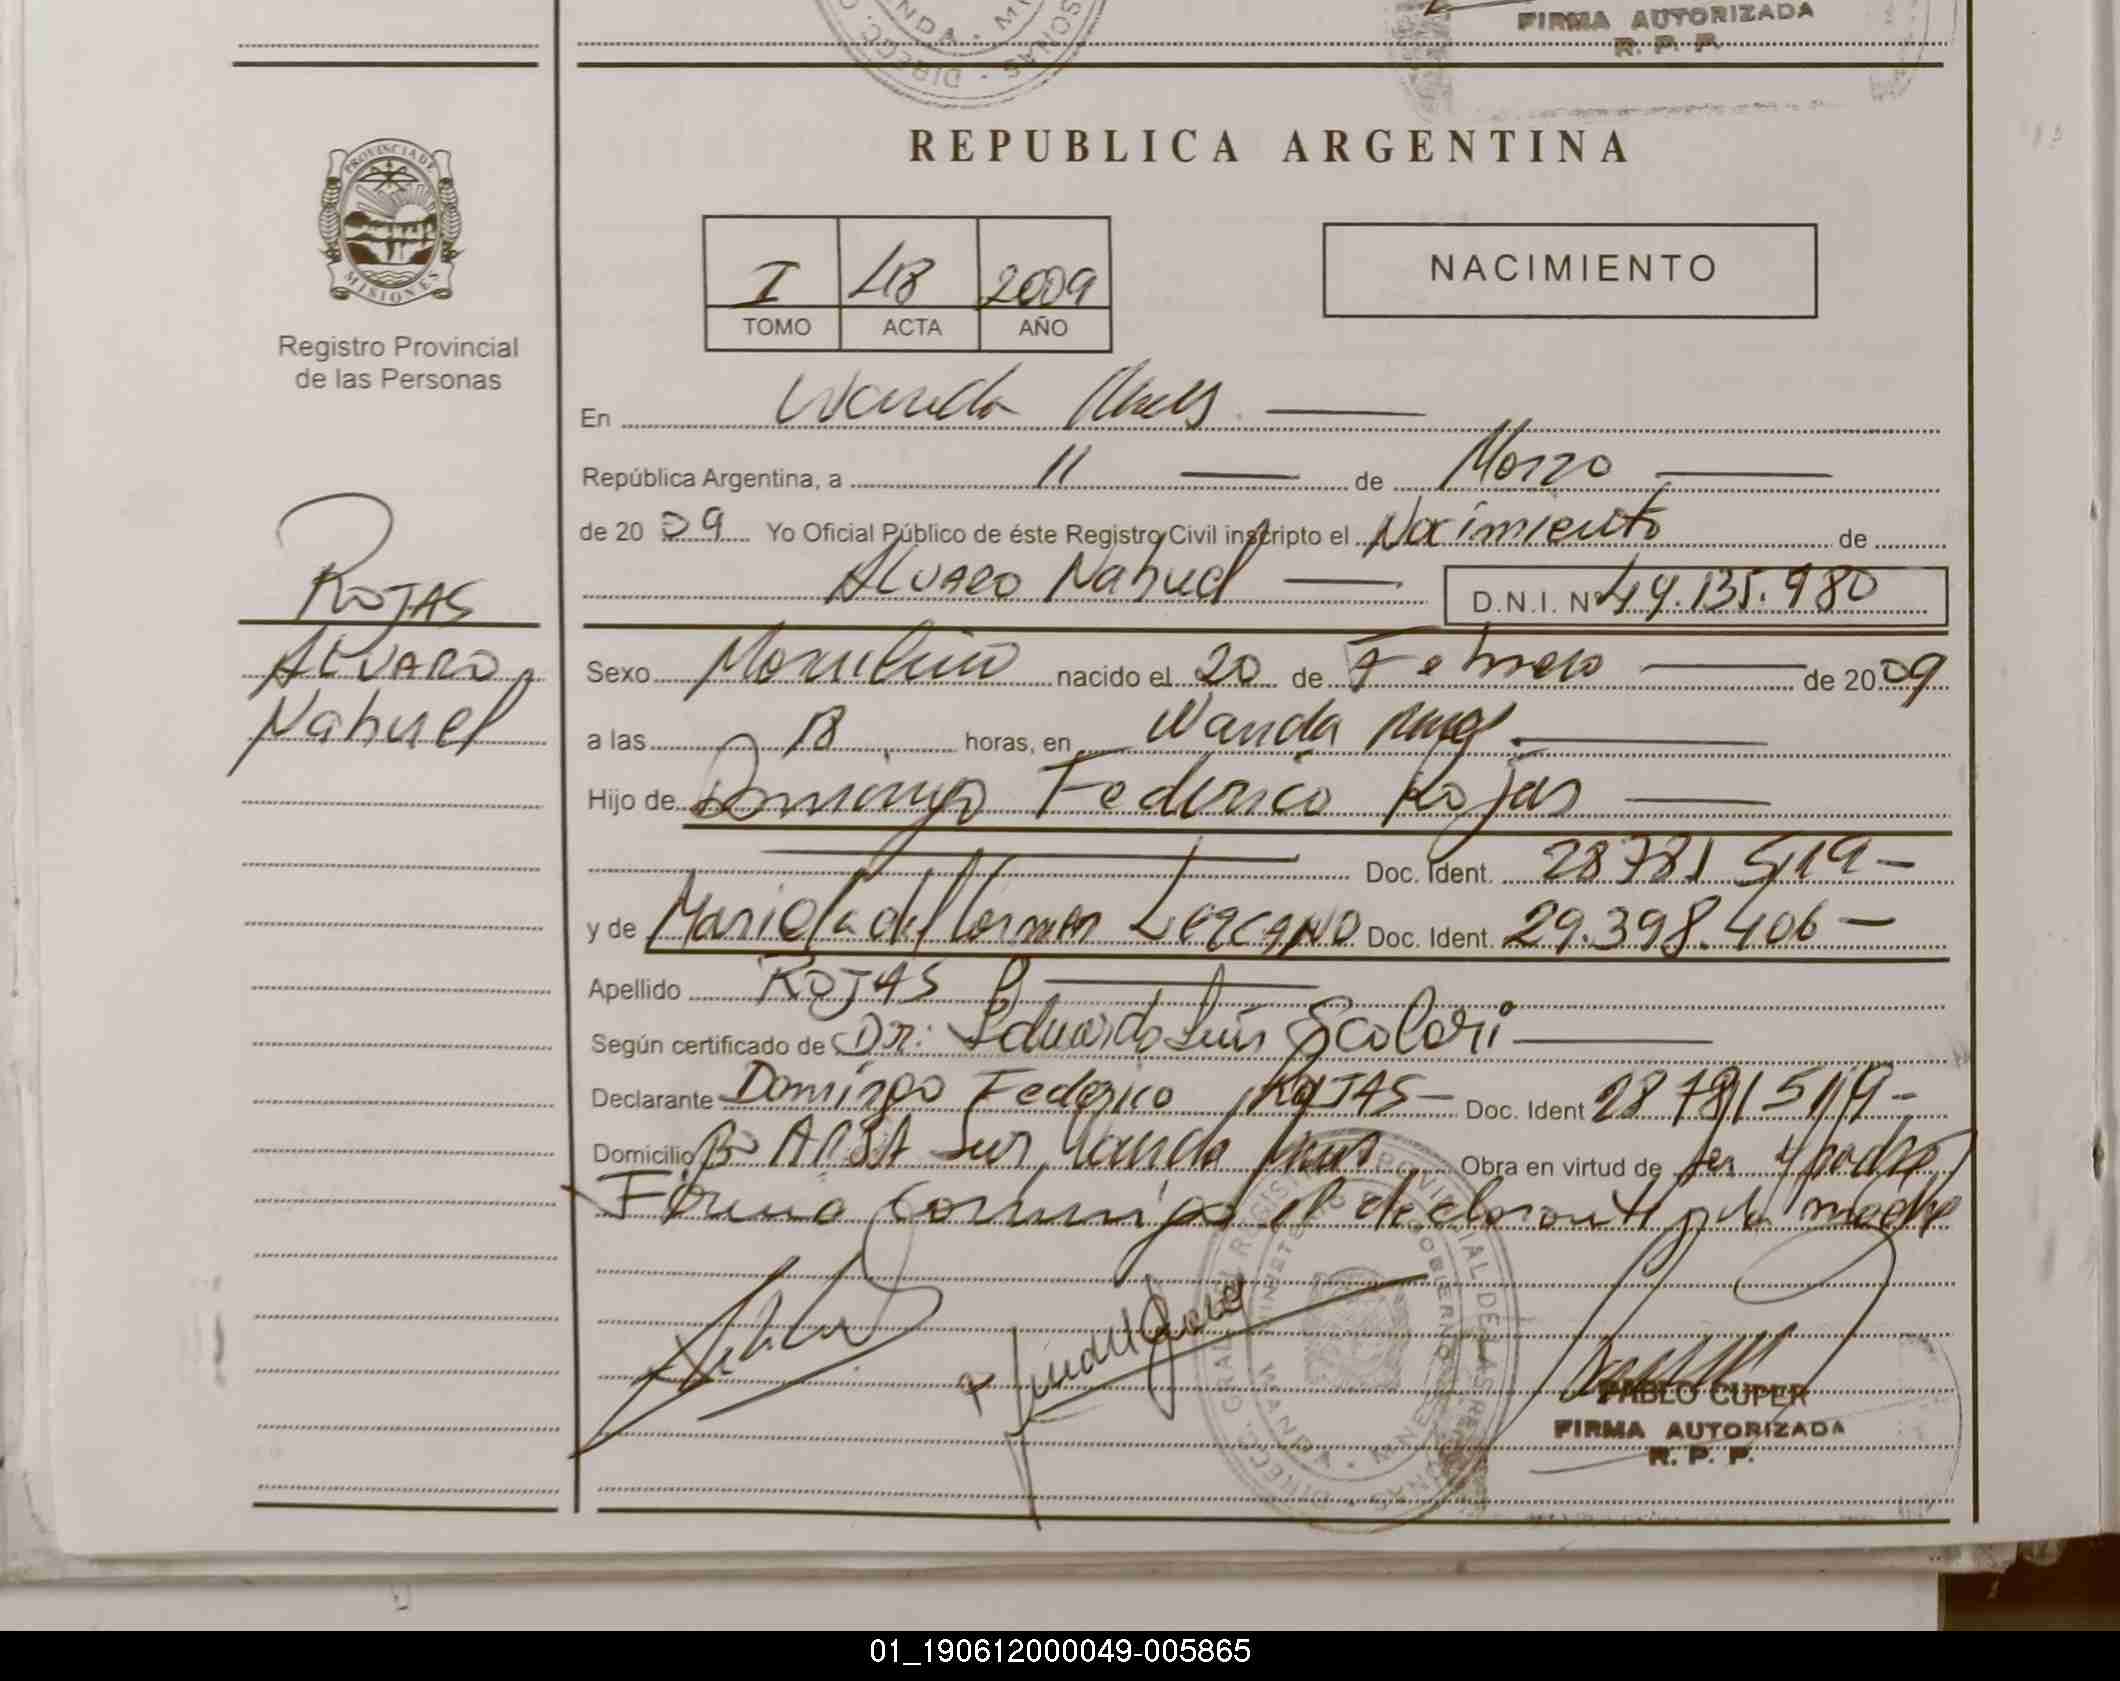 FIRMA AUTORIZADA
R. P. P.
PROVINCIA DE
MISIONES
Registro Provincial
de las Personas
ROJAS
ALVARO
Nahuel
REPUBLICA ARGENTINA
I 48 2009
TOMO ACTA AÑO
NACIMIENTO
En Wanda Mnes.
República Argentina, a 11 de Marzo
de 2009 Yo Oficial Público de éste Registro Civil inscripto el Nacimiento de
ALVARO Nahuel D.N.I. Nº 49.135.980
Sexo Masculino nacido el 20 de Febrero de 2009
a las 18 horas, en Wanda Mnes.
Hijo de Domingo Federico Rojas
Doc. Ident. 28781519-
y de Mariela del Carmen LEZCANO Doc. Ident. 29.398.406-
Apellido ROJAS
Según certificado de Dr. Eduardo Luis Scolari
Declarante Domingo Federico ROJAS- Doc. Ident 28781519-
Domicilio Bº Sur, Wanda Mnes Obra en virtud de ser padre
Firma conmigo el declarante y la madre
PABLO CUPER
FIRMA AUTORIZADA
R. P. P.
01_190612000049-005865